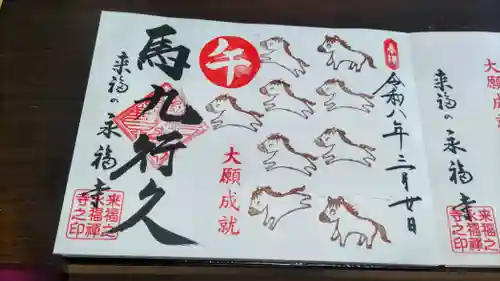 奉拝
令和八年二月廿日
午
大願成就
馬九行久
来福の永福寺
来福之
福禅
寺之印
大願成就
来福の永福寺
来福之
福禅
寺之印